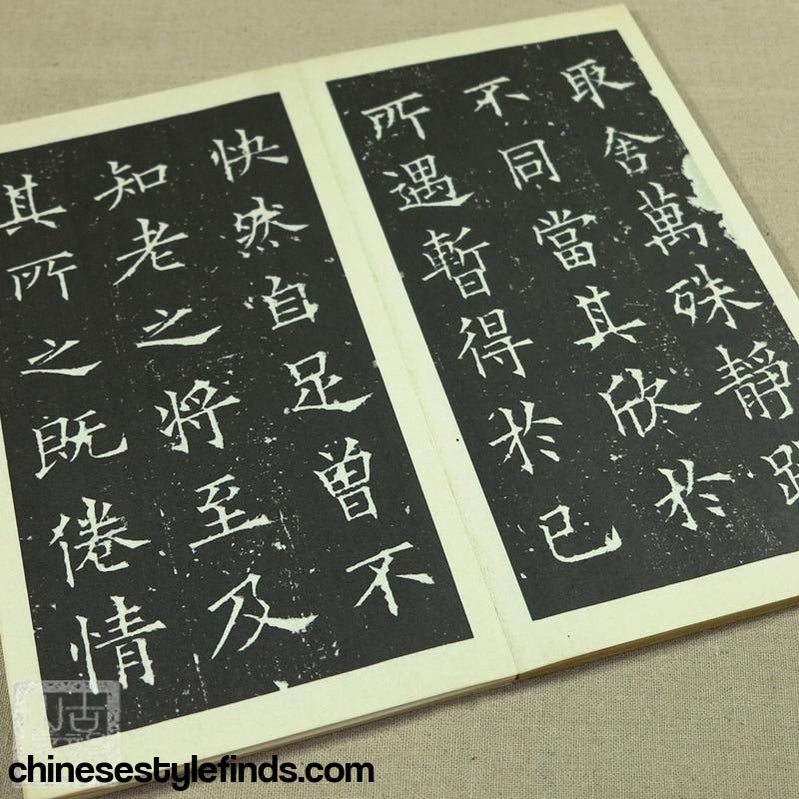 取舍萬殊靜
不同當其欣於
所遇暫得於已
快然自足曾不
知老之將至及
其所之既倦情
chinesestylefinds.com